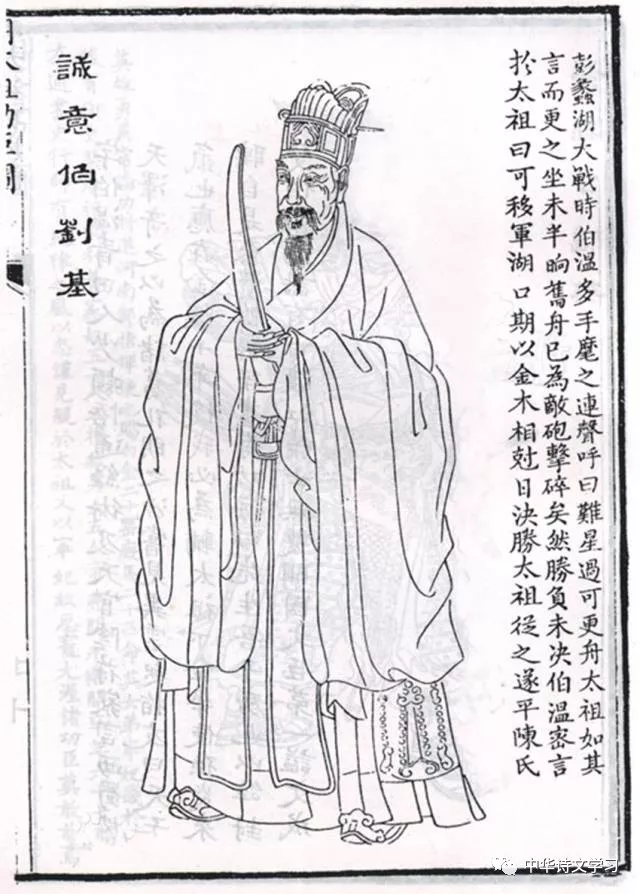 彭蠡湖大戰時伯溫多手麾之連聲呼曰難星過可更舟太祖如其
言而更之坐未半晌舊舟已為敵砲擊碎矣然勝負未决伯溫密言
扵太祖曰可移軍湖口期以金木相尅日決勝太祖從之遂平陳氏
誠意伯劉基
中华诗文学习